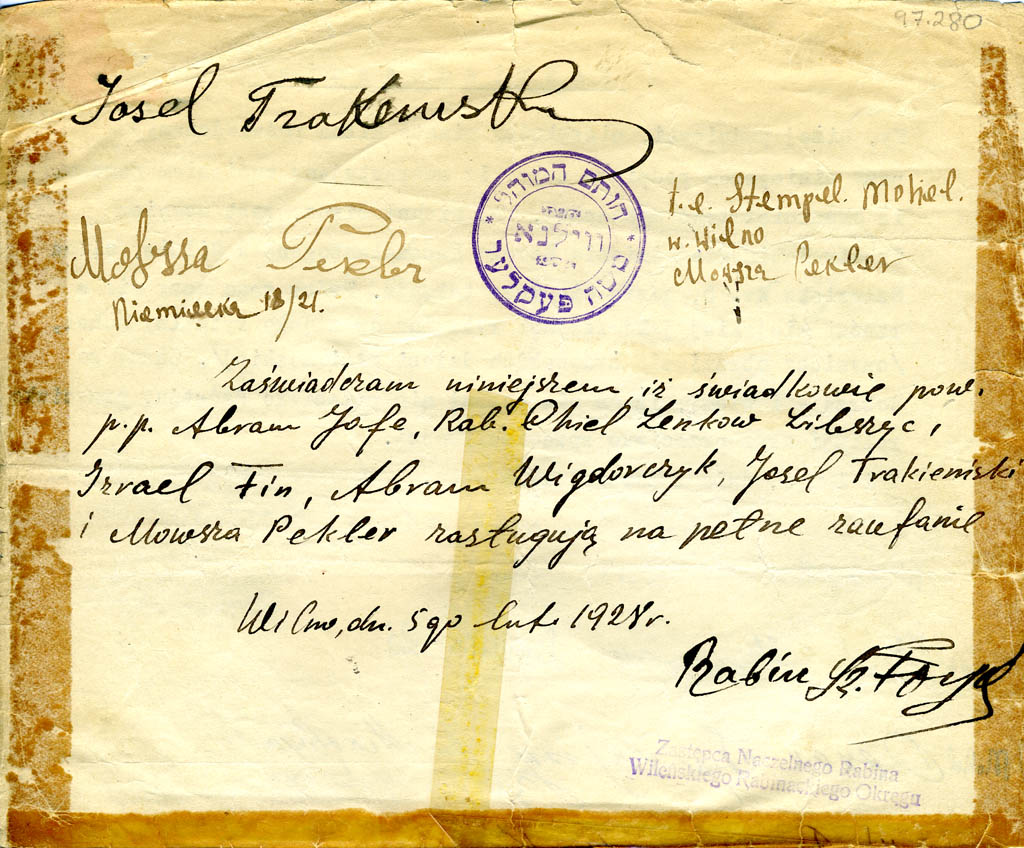 97.280
Josel Trakeniski
חותם המוהל
משה פעקלער
ווילנא
t.e. Stempel. Mohel.
w. Wilno
Mowsza Pekler
Mowssa Pekler
Niemiecka 18/21.
Zaświadczam niniejszem, iż świadkowie pow.
p.p. Abram Jofe, Rab. Chiel Lenkow Libszyc,
Izrael Fin, Abram Wigdorczyk, Josel Trakieniski
i Mowsza Pekler zasługują na pełne zaufanie
Wilno, dn. 5go lut. 1928r.
Rabin
Zastępca Naczelnego Rabina
Wileńskiego Rabinackiego Okręgu